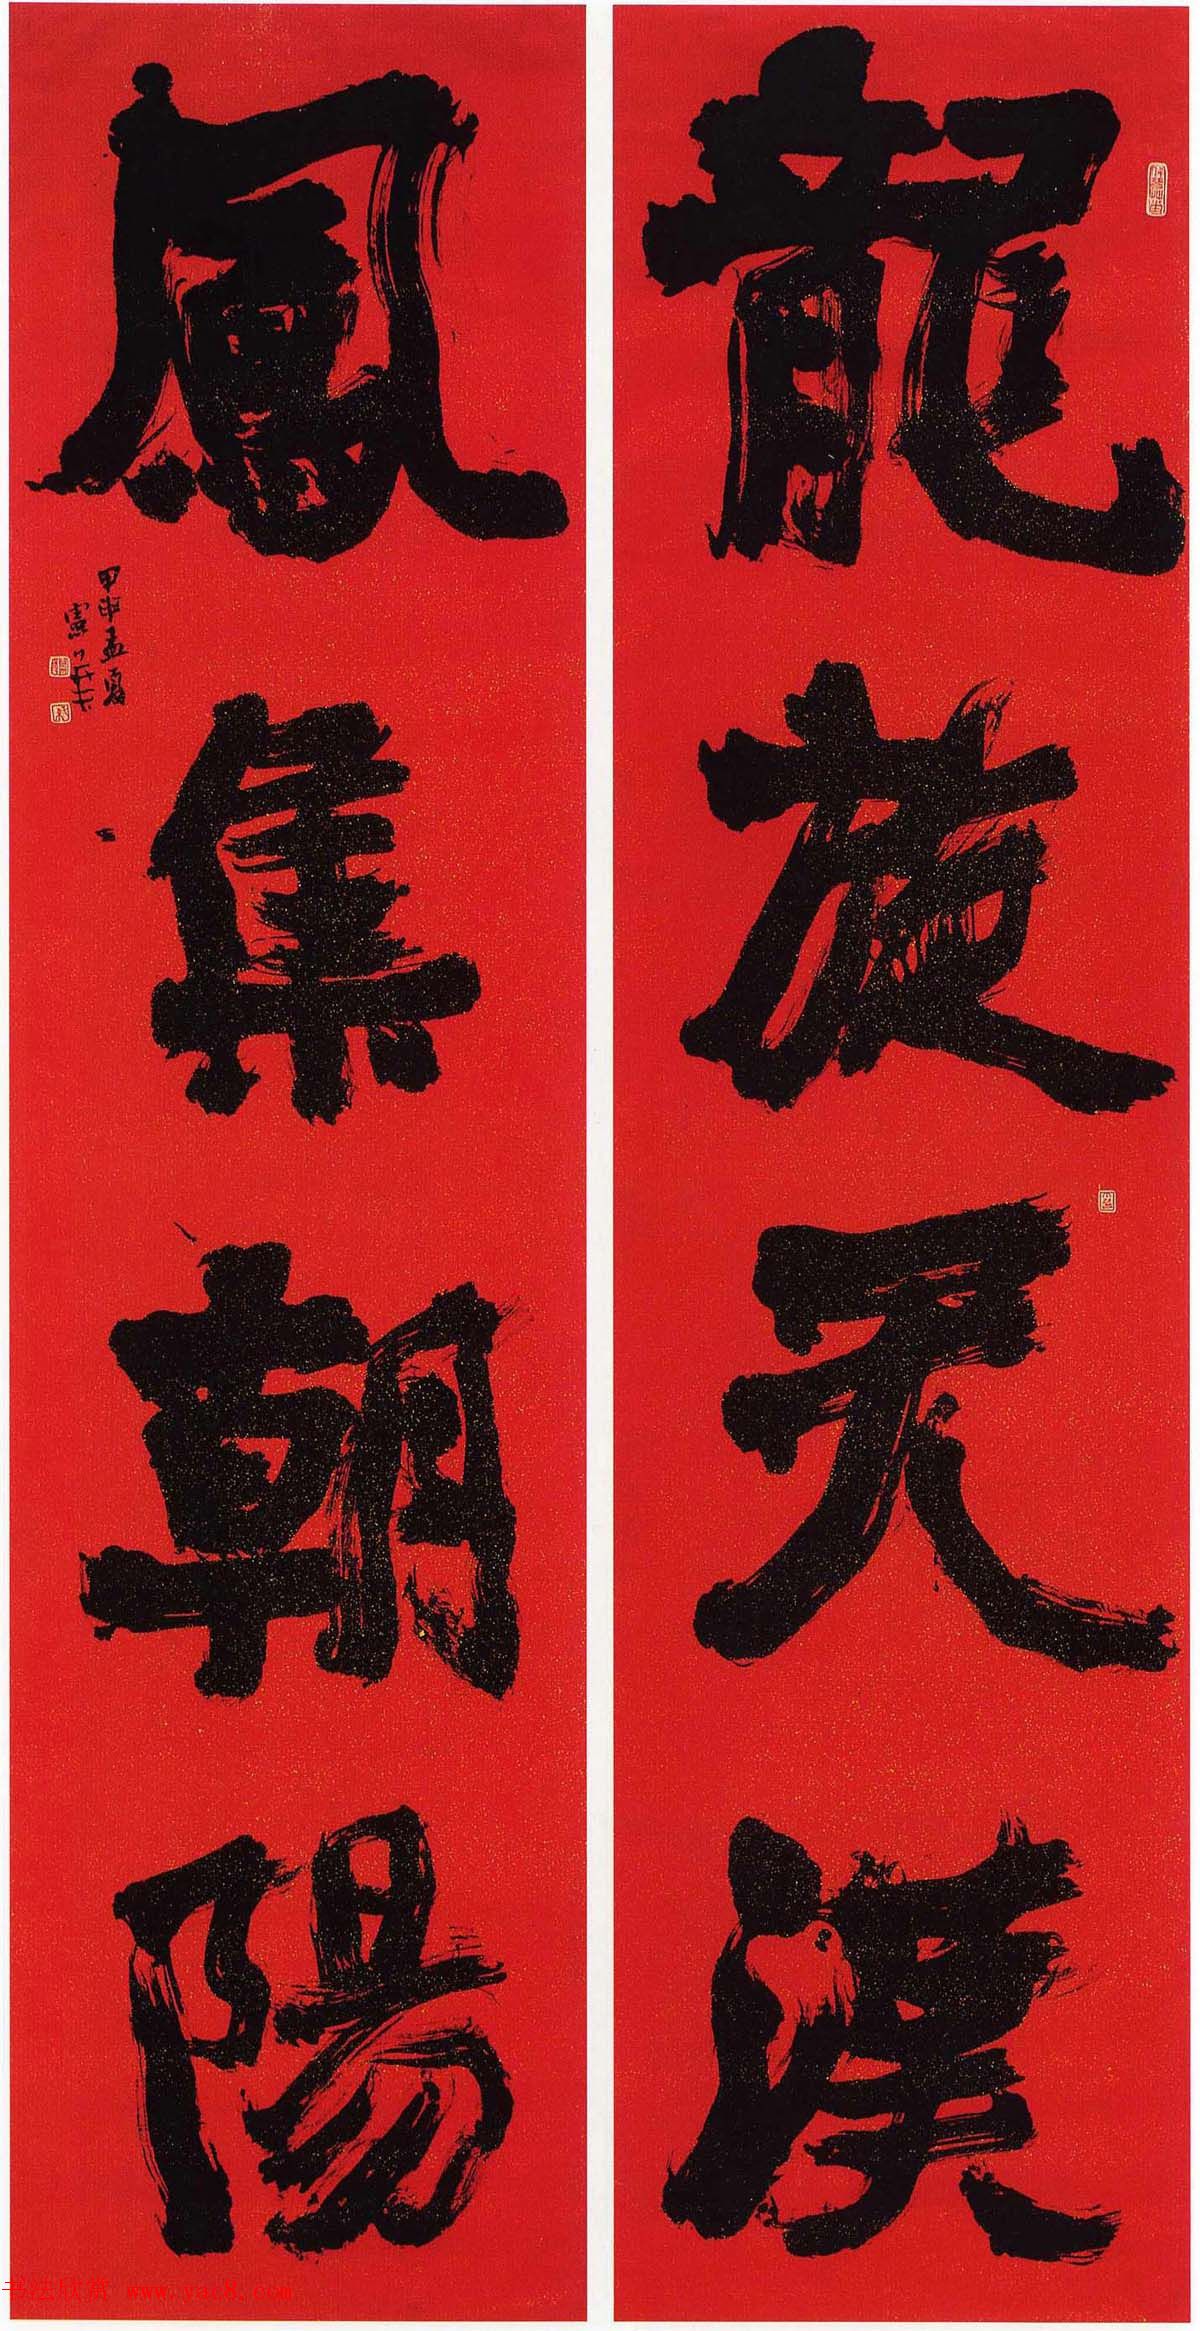 龍旋天漢
鳳集朝陽
甲申孟夏
书法欣赏 www.yac8.com